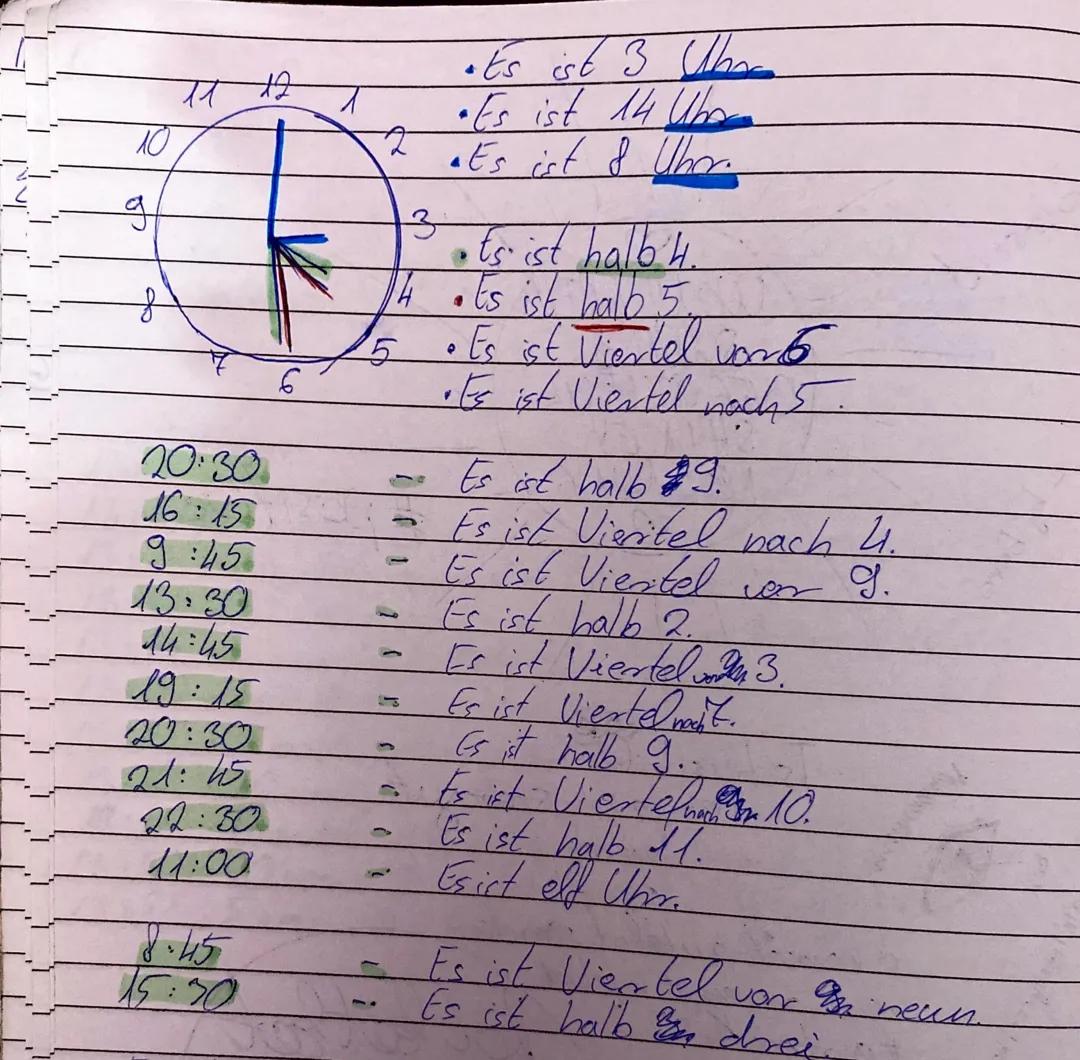 11 12 1
10 2
9 3
8 4
7 6 5
• Es ist 3 Uhr
• Es ist 14 Uhr.
• Es ist 8 Uhr.
• Es ist halb 4.
• Es ist halb 5.
• Es ist Viertel vor 6
• Es ist Viertel nach 5.
20:30 - Es ist halb 9.
16:15 - Es ist Viertel nach 4.
9:45 - Es ist Viertel vor 9.
13:30 - Es ist halb 2.
14:45 - Es ist Viertel vor 3.
19:15 - Es ist Viertel nach 7.
20:30 - Es ist halb 9.
21:45 - Es ist Viertel nach 10.
22:30 - Es ist halb 11.
11:00 - Es ist elf Uhr.
8:45 - Es ist Viertel vor neun.
15:30 - Es ist halb drei.